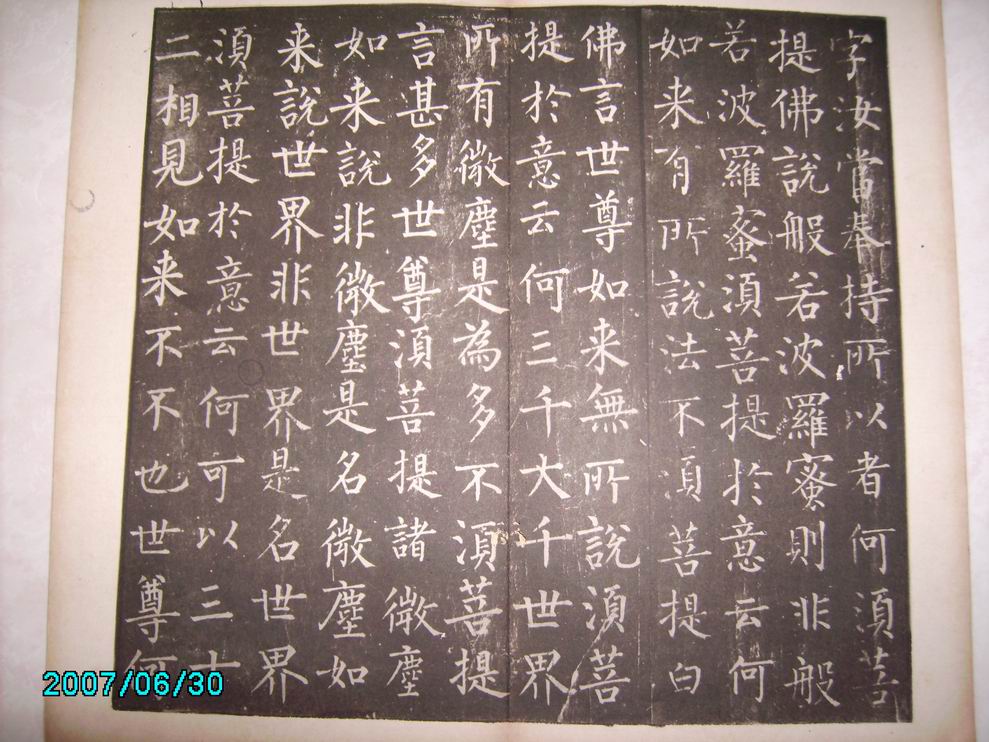 字汝當奉持所以者何須菩
提佛說般若波羅蜜則非般
若波羅蜜須菩提於意云何
如来有所說法不須菩提白
佛言世尊如来無所說須菩
提於意云何三千大千世界
所有微塵是為多不須菩提
言甚多世尊須菩提諸微塵
如来說非微塵是名微塵如
来說世界非世界是名世界
須菩提於意云何可以三十
二相見如来不不也世尊何
2007/06/30